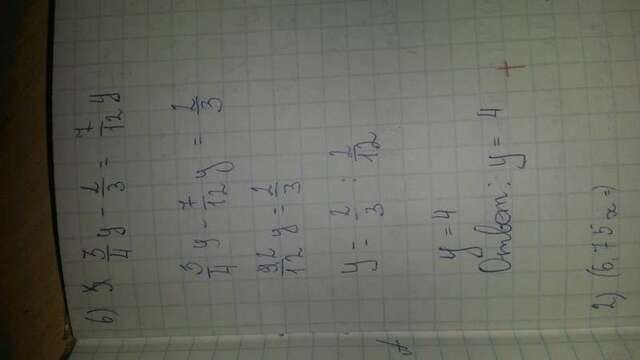 б) 3/4 y - 2/3 = 7/12 y
3/4 y - 7/12 y = 2/3
2/12 y = 2/3
y = 2/3 : 2/12
y = 4
Ответ: y = 4 +
2) (6,75x =)